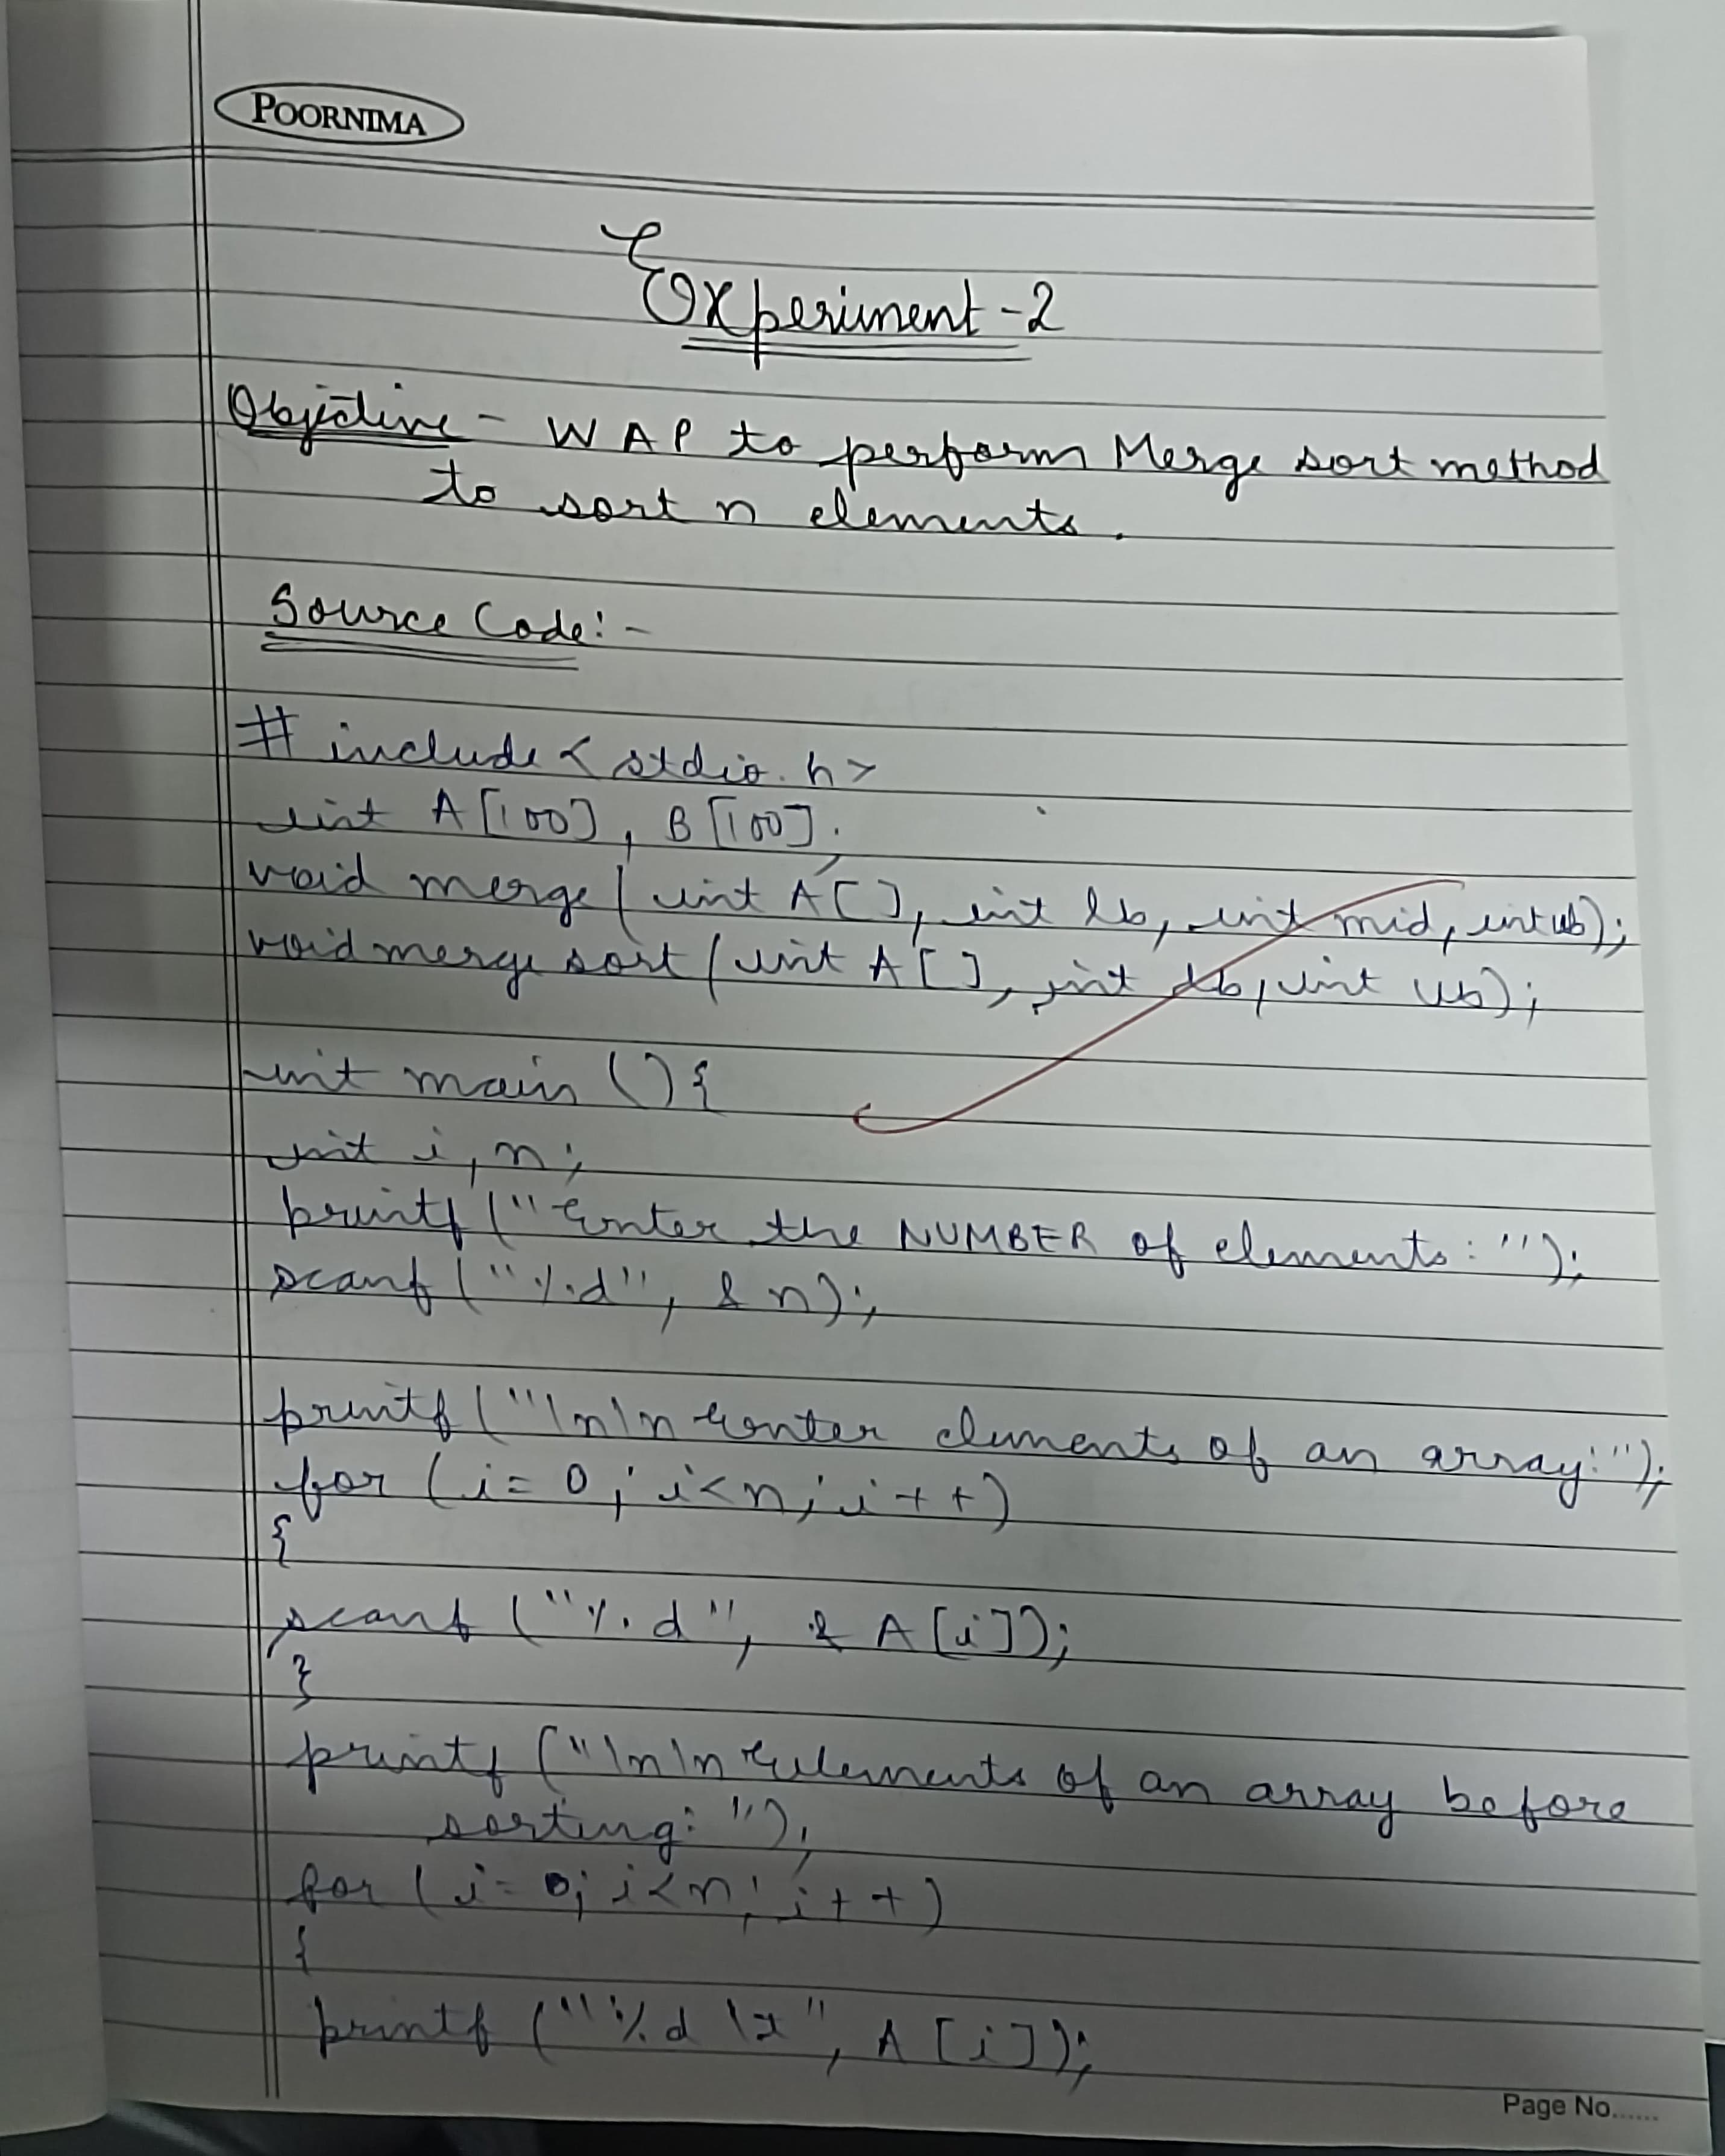 POORNIMA
Experiment-2
Objective - WAP to perform Merge sort method
to sort n elements.
Source Code:-
# include < stdio.h>
int A[100], B[100];
void merge( int A[], int lb, int mid, int ub);
void merge sort (int A[], int lb, int ub);
int main () {
int i, n;
printf ("Enter the NUMBER of elements: ");
scanf ("%d", & n);
printf ("\n\n Enter elements of an array:");
for (i= 0; i<n; i++)
{
scanf ("%d", & A[i]);
}
printf ("\n\n Eelements of an array before
sorting: ");
for (i= 0; i<n; i++)
{
printf ("%d \t", A[i]);
Page No......